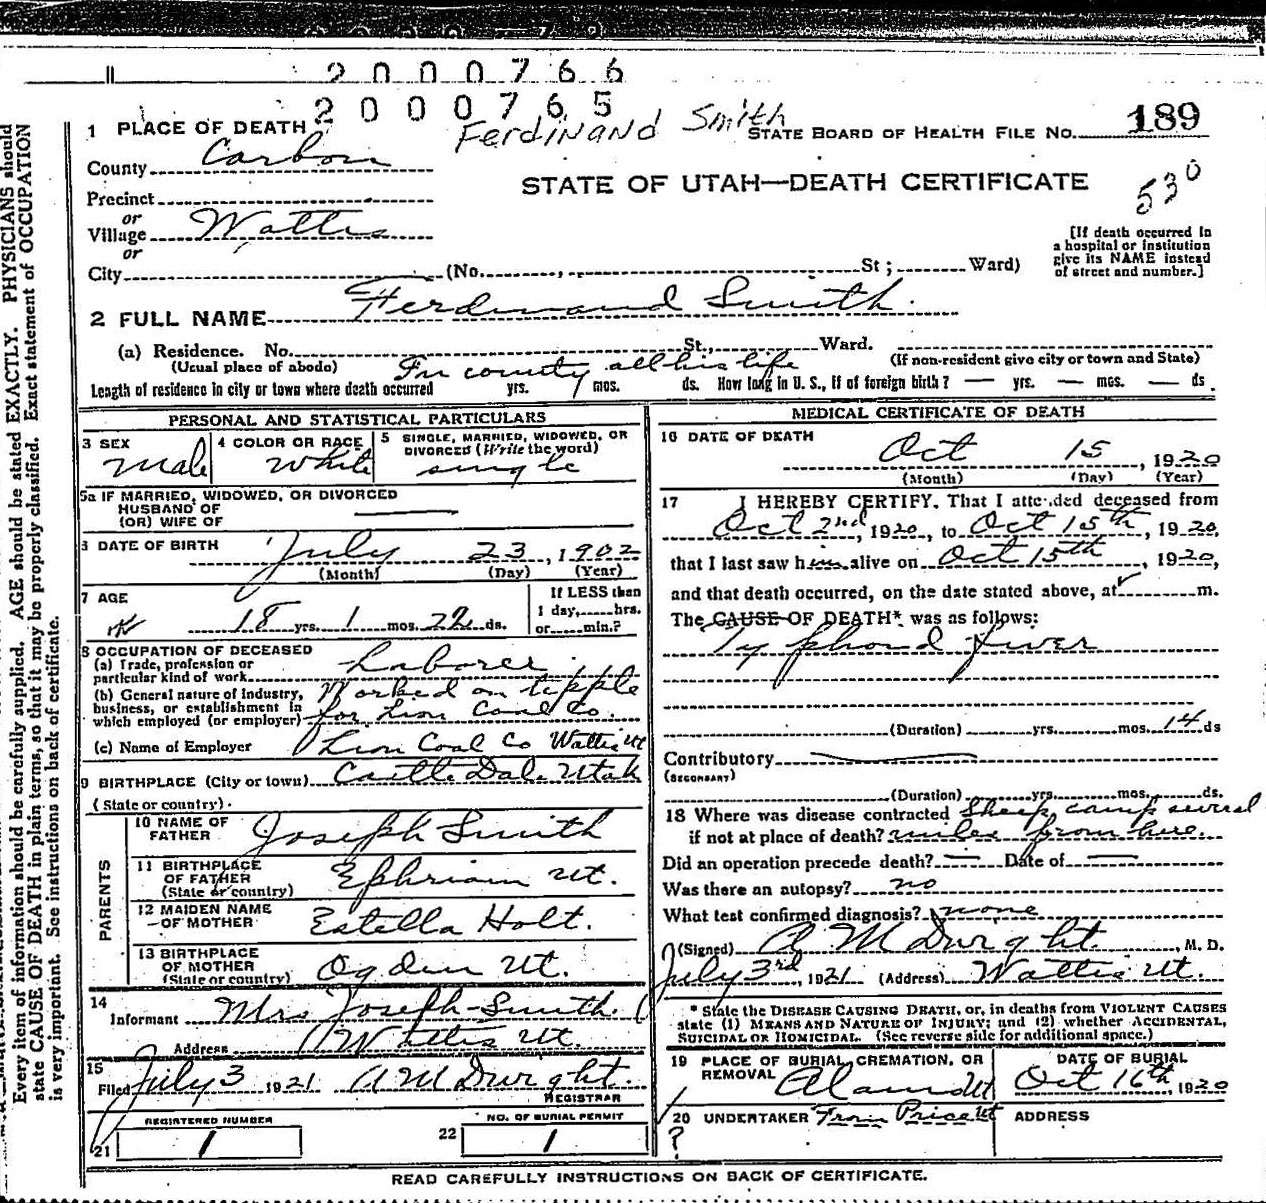 2000766
2000765
Ferdinand Smith
1 PLACE OF DEATH
STATE BOARD OF HEALTH FILE No. 189
County Carbon
STATE OF UTAH—DEATH CERTIFICATE
530
Precinct
or
Village Wattis
or
City (No. , St ; Ward)
[If death occurred in
a hospital or institution
give its NAME instead
of street and number.]
2 FULL NAME Ferdinand Smith.
(a) Residence. No. St., Ward.
(Usual place of abode) (If non-resident give city or town and State)
In county all his life
Length of residence in city or town where death occurred yrs. mos. ds. How long in U. S., if of foreign birth? — yrs. — mos. — ds.
PERSONAL AND STATISTICAL PARTICULARS
3 SEX
Male
4 COLOR OR RACE
White
5 SINGLE, MARRIED, WIDOWED, OR
DIVORCED (Write the word)
single
5a IF MARRIED, WIDOWED, OR DIVORCED
HUSBAND OF
(OR) WIFE OF
6 DATE OF BIRTH July 23, 1902
(Month) (Day) (Year)
7 AGE
18 yrs. 1 mos. 22 ds.
If LESS than
1 day, hrs.
or min.?
8 OCCUPATION OF DECEASED
(a) Trade, profession or
particular kind of work Laborer
(b) General nature of industry,
business, or establishment in
which employed (or employer)
Worked on tipple
for Lion Coal Co.
(c) Name of Employer Lion Coal Co Wattis Ut
9 BIRTHPLACE (City or town) Castle Dale Utah
(State or country)
PARENTS
10 NAME OF
FATHER Joseph Smith
11 BIRTHPLACE
OF FATHER
(State or country) Ephriam Ut.
12 MAIDEN NAME
OF MOTHER Estella Holt.
13 BIRTHPLACE
OF MOTHER
(State or country) Ogden Ut.
14
Informant Mrs Joseph Smith.
Address Wattis Ut.
15
Filed July 3 1921 A M Dwight.
REGISTRAR
REGISTERED NUMBER
21 1
NO. OF BURIAL PERMIT
22 1
MEDICAL CERTIFICATE OF DEATH
16 DATE OF DEATH
Oct 15, 1920
(Month) (Day) (Year)
17 I HEREBY CERTIFY, That I attended deceased from
Oct 2nd, 1920, to Oct 15th, 1920,
that I last saw him alive on Oct 15th, 1920,
and that death occurred, on the date stated above, at m.
The CAUSE OF DEATH* was as follows:
Typhoid Fiver
(Duration) yrs. mos. 14 ds
Contributory
(SECONDARY)
(Duration) yrs. mos. ds.
18 Where was disease contracted Sheep camp several
if not at place of death? miles from here.
Did an operation precede death? — Date of —
Was there an autopsy? no
What test confirmed diagnosis? none
(Signed) A M Dwight, M. D.
July 3rd, 1921 (Address) Wattis Ut.
* State the DISEASE CAUSING DEATH, or, in deaths from VIOLENT CAUSES
state (1) MEANS AND NATURE OF INJURY; and (2) whether ACCIDENTAL,
SUICIDAL OR HOMICIDAL. (See reverse side for additional space.)
19 PLACE OF BURIAL, CREMATION, OR
REMOVAL
DATE OF BURIAL
Oct 16th, 1920
20 UNDERTAKER From Price Ut
?
ADDRESS
READ CAREFULLY INSTRUCTIONS ON BACK OF CERTIFICATE.
Every item of information should be carefully supplied. AGE should be stated EXACTLY. PHYSICIANS should
state CAUSE OF DEATH in plain terms, so that it may be properly classified. Exact statement of OCCUPATION
is very important. See instructions on back of certificate.